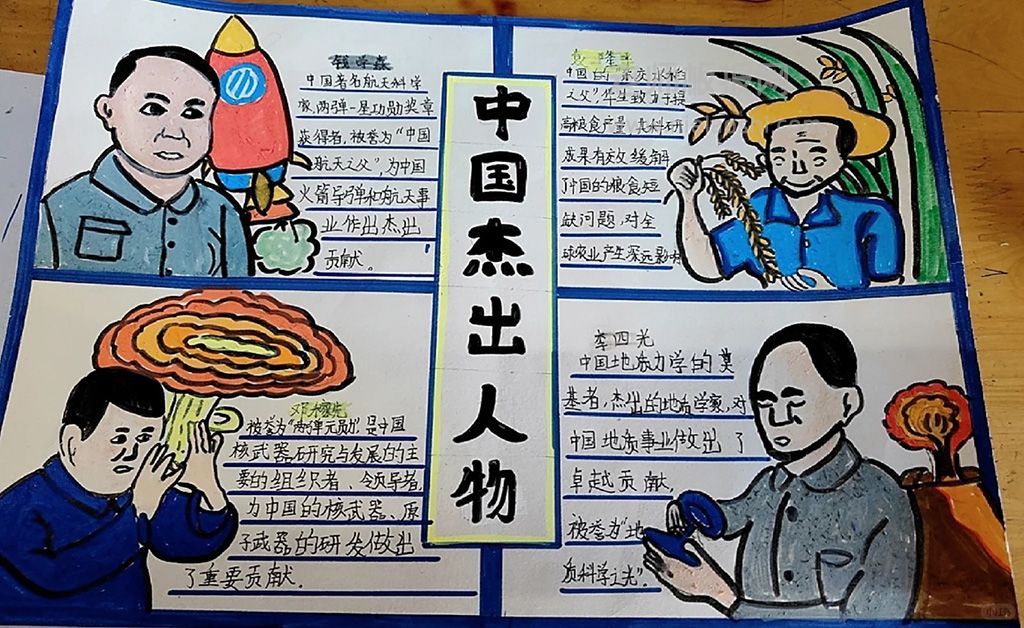 中国杰出人物
钱学森
中国著名航天科学
家,两弹一星功勋奖章
获得者,被誉为“中国
航天之父”,为中国
火箭导弹和航天事
业作出杰出
贡献。
袁隆平
中国的“杂交水稻
之父”,毕生致力于提
高粮食产量,其科研
成果有效缓解
了中国的粮食短
缺问题,对全
球农业产生深远影响
邓稼先
被誉为“两弹元勋”,是中国
核武器研究与发展的主
要的组织者、领导者,
为中国的核武器、原
子武器的研发做出
了重要贡献.
李四光
中国地质力学的奠
基者,杰出的地质学家,对
中国地质事业做出了
卓越贡献,
被誉为“地
质科学之光”.